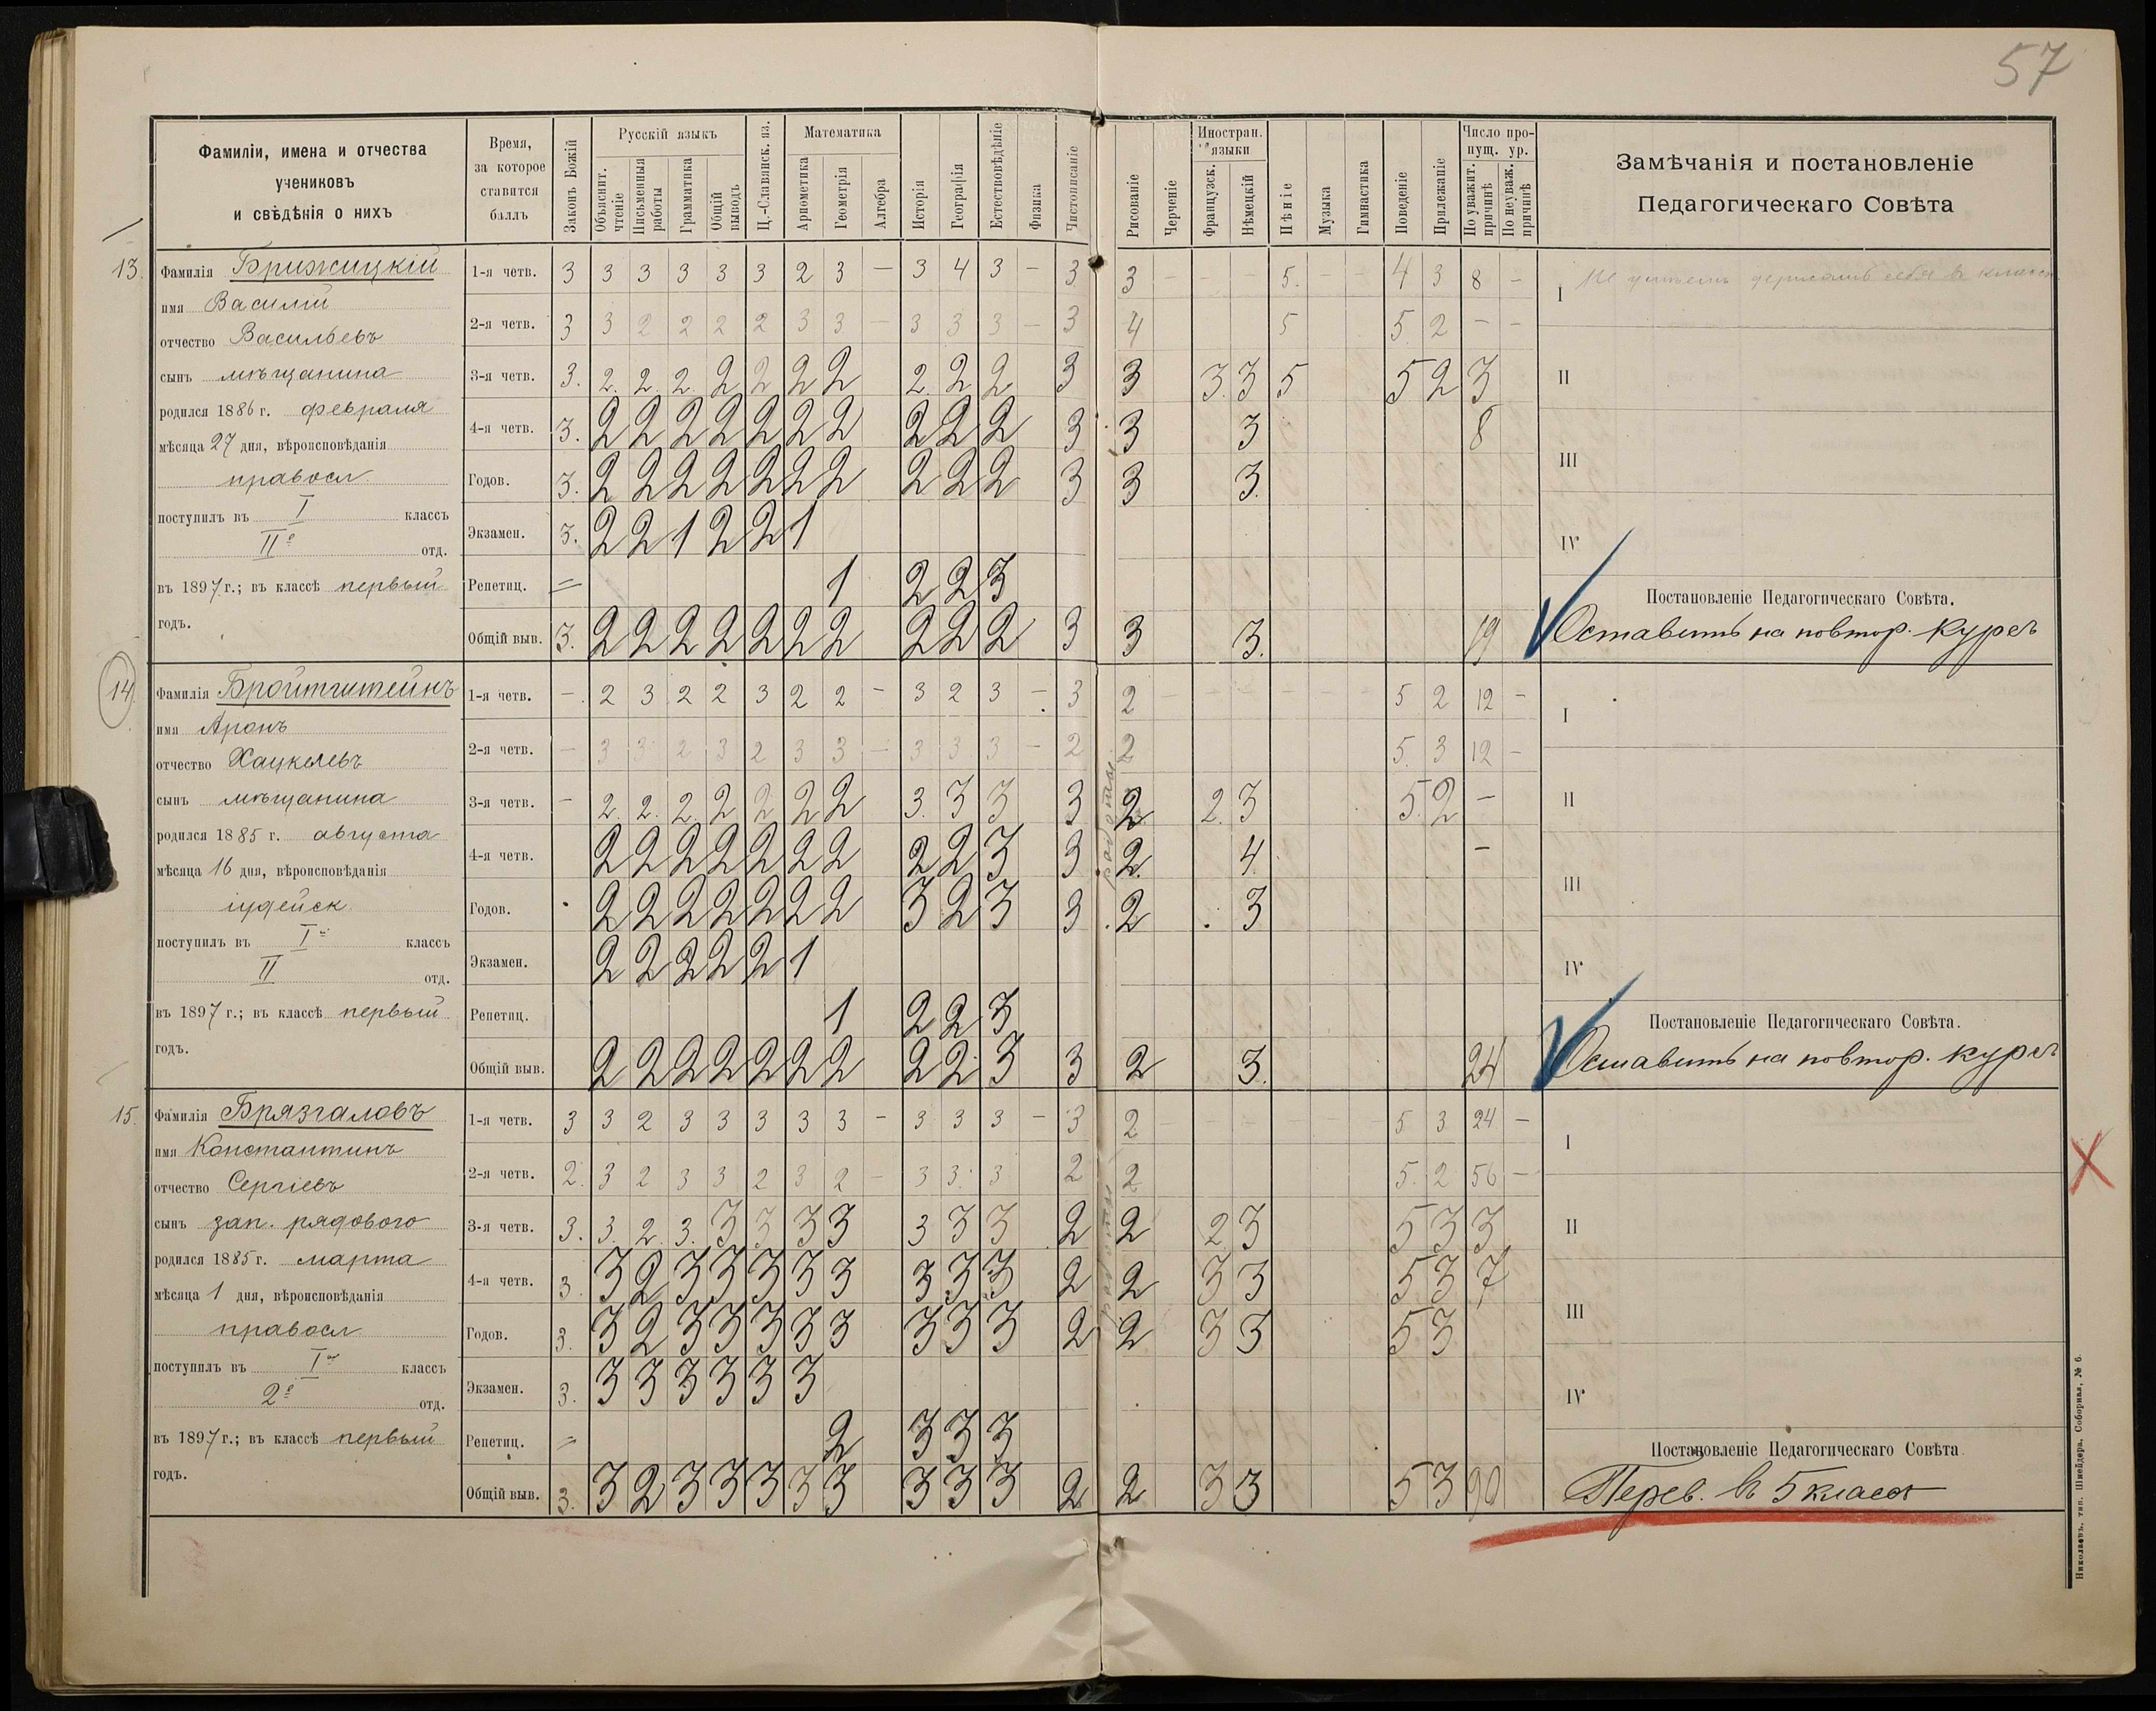 57
Фамиліи, имена и отчества
учениковъ
и свѣдѣнія о нихъ
Время,
за которое
ставится
баллъ
Законъ Божій
Русскій языкъ
Объяснит. чтеніе
Письменныя работы
Грамматика
Общій выводъ
Ц.-Славянск. яз.
Математика
Ариѳметика
Геометрія
Алгебра
Исторія
Географія
Естествовѣдѣніе
Физика
Чистописаніе
Рисованіе
Черченіе
Иностран. языки
Французск.
Нѣмецкій
Пѣніе
Музыка
Гимнастика
Поведеніе
Прилежаніе
Число пропущ. ур.
По уважит. причинѣ
По неуваж. причинѣ
Замѣчанія и постановленіе
Педагогическаго Совѣта
13.
Фамилія Брижицкій
имя Василій
отчество Васильевъ
сынъ мѣщанина
родился 1886 г. февраля
мѣсяца 27 дня, вѣроисповѣданія
правосл.
поступилъ въ I классъ
IIе отд.
въ 1897 г.; въ классѣ первый
годъ.
1-я четв. 3 3 3 3 3 3 2 3 — 3 4 3 — 3 3 — — — 5. — — 4 3 8 —
2-я четв. 3 3 2 2 2 2 3 3 — 3 3 3 — 3 4 5 5 2 — —
3-я четв. 3. 2. 2. 2. 2 2 2 2 2. 2 2 3 3 3. 3 5 5 2 3
4-я четв. 3. 2 2 2 2 2 2 2 2 2 2 3 3 3 8
Годов. 3. 2 2 2 2 2 2 2 2 2 2 3 3 3.
Экзамен. 3. 2 2 1 2 2 1
Репетиц. = 1 2 2 3
Общій выв. 3. 2 2 2 2 2 2 2 2 2 2 3 3 3. 19
I
Не умѣетъ держать себя въ классѣ
II
III
IV
Постановленіе Педагогическаго Совѣта.
Оставить на повтор. курсъ
14
Фамилія Бройтштейнъ
имя Аронъ
отчество Хацкелевъ
сынъ мѣщанина
родился 1885 г. августа
мѣсяца 16 дня, вѣроисповѣданія
іудейск.
поступилъ въ I классъ
II отд.
въ 1897 г.; въ классѣ первый
годъ.
1-я четв. — 2 3 2 2 3 2 2 — 3 2 3 — 3 2 — — — — — — 5 2 12 —
2-я четв. — 3 3 2 3 2 3 3 — 3 3 3 — 2 2 5. 3 12 —
3-я четв. — 2. 2. 2. 2 2 2 2 3. 3 3 3 2 2. 3 5. 2 —
4-я четв. 2 2 2 2 2 2 2 2 2 3 3 2 4 —
Годов. 2 2 2 2 2 2 2 3 2 3 3 2 3
Экзамен. 2 2 2 2 2 1
Репетиц. 1 2 2 3
Общій выв. 2 2 2 2 2 2 2 2 2 3 3 2 3. 24
I
II
III
IV
Постановленіе Педагогическаго Совѣта.
Оставить на повтор. курсъ
15.
Фамилія Брязгаловъ
имя Константинъ
отчество Сергіевъ
сынъ зап. рядового
родился 1885 г. марта
мѣсяца 1 дня, вѣроисповѣданія
правосл
поступилъ въ I классъ
2е отд.
въ 1897 г.; въ классѣ первый
годъ.
1-я четв. 3 3 2 3 3 3 3 3 — 3 3 3 — 3 2 — — — — — 5 3 24 —
2-я четв. 2. 3 2 3 3 2 3 2 — 3 3 3 2 2 5. 2 56 —
3-я четв. 3. 3. 2. 3. 3 3 3 3 3 3 3 2 2 2 3 5 3 3
4-я четв. 3 3 2 3 3 3 3 3 3 3 3 2 2 3 3 5 3 7
Годов. 3. 3 2 3 3 3 3 3 3 3 3 2 2 3 3 5 3
Экзамен. 3. 3 3 3 3 3 3
Репетиц. = 2 3 3 3
Общій выв. 3. 3 2 3 3 3 3 3 3 3 3 2 2 3 3 5 3 90
I
II
III
IV
Постановленіе Педагогическаго Совѣта
Перев. въ 5 классъ
Николаевъ, тип. Шнейдера, Соборная, № 6.